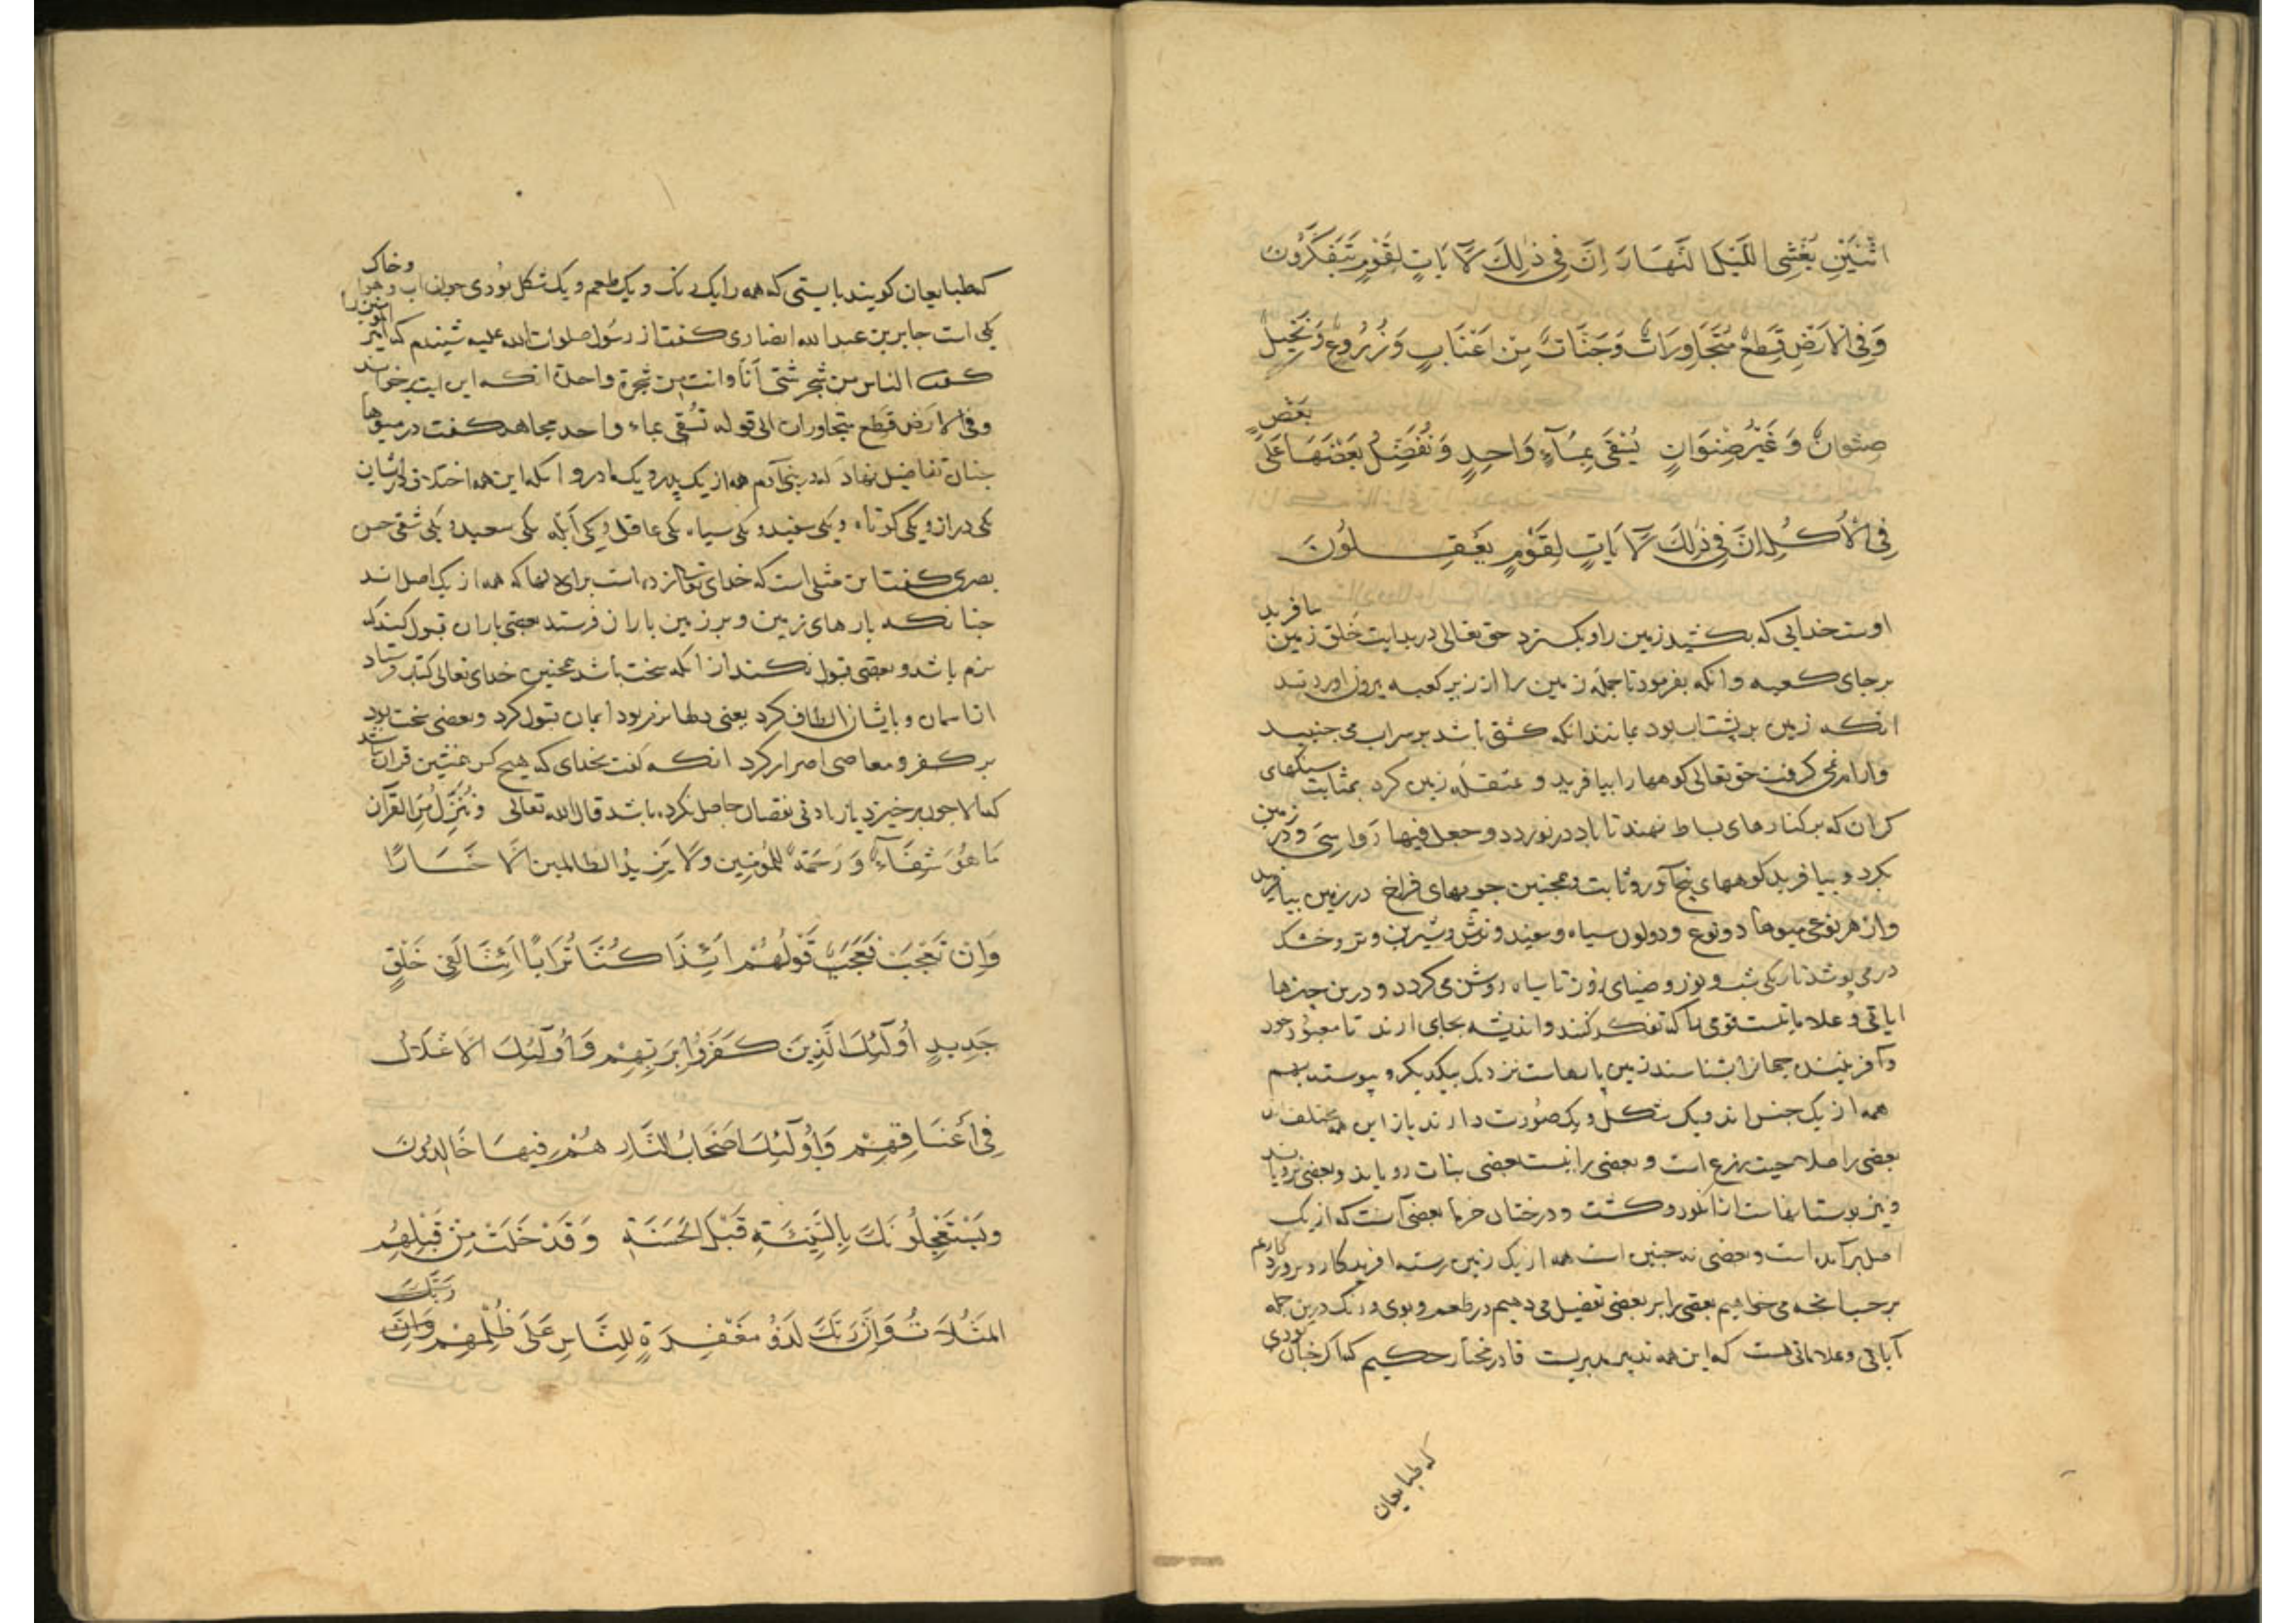 اثْنَيْنِ يُغْشِي اللَّيْلَ النَّهَارَ اِنَّ فِي ذٰلِكَ لَآيَاتٍ لِقَوْمٍ يَتَفَكَّرُونَ
وَفِي الْاَرْضِ قِطَعٌ مُتَجَاوِرَاتٌ وَجَنَّاتٌ مِنْ اَعْنَابٍ وَزُرُوعٌ وَنَخِيلٌ
صِنْوَانٌ وَغَيْرُ صِنْوَانٍ يُسْقَى بِمَآءٍ وَاحِدٍ وَنُفَضِّلُ بَعْضَهَا عَلَى بَعْضٍ
فِي الْاُكُلِ اِنَّ فِي ذٰلِكَ لَآيَاتٍ لِقَوْمٍ يَعْقِلُونَ
اوست خدایی که بکشید زمین را و بکسترد حق تعالی در بدایت خلق زمین بیافرید
بر جای کعبه و انکه بفرمود تا جمله زمین را از زیر کعبه بیرون اوردند
انکه زمین بر پشت اب بود بمانند انکه کشتی باشد بر سر اب می جنبید
و ارام نمی کرفت حق تعالی کوهها را بیافرید و زمین کرد بمثابت سنکهای
کران که بر کنارهای بساط نهند تا باد در نوردد و جعل فیها رواسی و در زمین
بکرد و بیافرید کوههای بیخ آور و ثابت و همچنین جویهای فراخ در زمین بیافرید
و از هر نوعی میوها دو نوع و دو لون سیاه و سفید و ترش و شیرین و تر و خشک
در می پوشد تاریکی شب و نور و ضیای روز تا سیاه روشن می کردد و درین چیزها
ایاتی و علاماتست قومی را که تفکر کنند و اندیشه بجای ارند تا معبود خود
و آفریننده جهانرا بشناسند زمین پارهاست نزدیک بیکدیکر و پیوسته بهم
همه از یک جنس اند و یک شکل و یک صورت دارند باز این همه مختلف اند
بعضی را صلاحیت زرع است و بعضی را نیست بعضی نبات رویاند و بعضی نرویاند
و نیز بوستانهاست از انکور و کشت و درختان خرما بعضی آنست که از یک
اصل برآمده است و بعضی نه چنین است همه از یک زمین رسته افریدکار و پروردکارم
بر حسب انچه می خواهیم بعضی را بر بعضی تفضیل می دهیم در طعم و بوی و رنک درین جمله
آیاتی و علاماتی هست که این همه تدبیر مدبریست قادر مختار حکیم که اکر چنان بودی
که طبایعان
که طبایعان کویند بایستی که همه را یک رنک و یک طعم و یک شکل بودی چون اب و هوا و خاک
یکی است جابر بن عبد الله انصاری کفت از رسول صلوات الله علیه شنیدم که امیر المومنین را
کفت الناس من شجر شتی أنا وانت من شجرة واحدة انکه این ایت برخواند
وفی الارض قطع متجاورات الی قوله تسقی بماء واحد مجاهد کفت در میوها
چنان تفاضیل نهاد که در بنی آدم همه از یک پدر و یک مادر و انکه این همه اختلاف در ایشان
یکی دراز و یکی کوتاه و یکی سفید و یکی سیاه یکی عاقل و یکی ابله یکی سعید و یکی شقی حسن
بصری کفت این مثلی است که خدای تعالی زده است برای دلها که همه از یک اصل اند
چنانکه پارهای زمین و بر زمین باران فرستد بعضی باران قبول کند که
نرم باشد و بعضی قبول نکند از انکه سخت باشد همچنین خدای تعالی کتاب فرستاد
از اسمان و با یشان الطاف کرد بعنی دلها نرم بود ایمان قبول کرد و بعضی سخت بود
بر کفر و معاصی اصرار کرد انکه کفت بخدای که هیچ کس همنشین قران نباشد
که الا چون برخیزد یا زیادتی نقصان حاصل نکرده باشد قال الله تعالی وَنُنَزِّلُ مِنَ القرآن
مَا هُوَ شِفَاءٌ وَرَحْمَةٌ لِلْمُؤمِنِينَ وَلَا يَزِيدُ الظالمين اِلَّا خَسَارًا
وَاِنْ تَعْجَبْ فَعَجَبٌ قَوْلُهُمْ اَئِذَا كُنَّا تُرَابًا اَئِنَّا لَفِي خَلْقٍ
جَدِيدٍ اُولٰئِكَ الَّذِينَ كَفَرُوا بِرَبِّهِمْ وَاُولٰئِكَ الْاَغْلَالُ
فِي اَعْنَاقِهِمْ وَاُولٰئِكَ اَصْحَابُ النَّارِ هُمْ فِيهَا خَالِدُونَ
وَيَسْتَعْجِلُونَكَ بِالسَّيِّئَةِ قَبْلَ الْحَسَنَةِ وَقَدْ خَلَتْ مِنْ قَبْلِهِمُ
المَثُلَاتُ وَاِنَّ رَبَّكَ لَذُو مَغْفِرَةٍ لِلنَّاسِ عَلَى ظُلْمِهِمْ وَاِنَّ رَبَّكَ